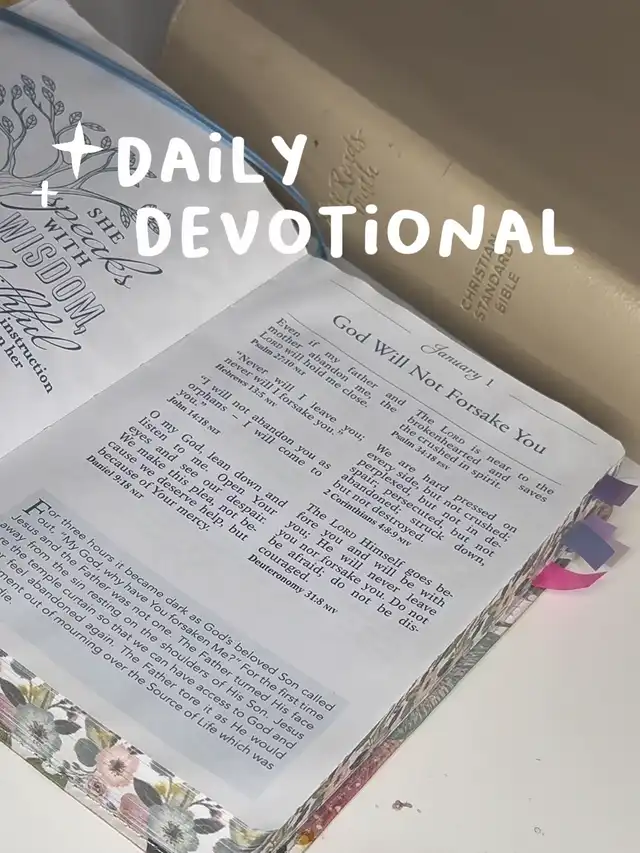 DAiLY
DEVOTiONAL
SHE
speaks
WITH
WISDOM,
faithful
instruction
on her
CHRISTIAN
STANDARD
BIBLE
January 1
God Will Not Forsake You
Even if my father and
mother abandon me, the
LORD will hold me close.
Psalm 27:10 NLT
"Never will I leave you;
never will I forsake you."
Hebrews 13:5 NIV
"I will not abandon you as
orphans – I will come to
you."
John 14:18 NLT
O my God, lean down and
listen to me. Open Your
eyes and see our despair.
We make this plea not be-
cause we deserve help, but
because of Your mercy.
Daniel 9:18 NLT
The LORD is near to the
brokenhearted and saves
the crushed in spirit.
Psalm 34:18 ESV
We are hard pressed on
every side, but not crushed;
perplexed, but not in de-
spair; persecuted, but not
abandoned; struck down,
but not destroyed.
2 Corinthians 4:8-9 NIV
The LORD Himself goes be-
fore you and will be with
you; He will never leave
you nor forsake you. Do not
be afraid; do not be dis-
couraged.
Deuteronomy 31:8 NIV
For three hours it became dark as God's beloved Son called
out, "My God, why have You forsaken Me?" For the first time
Jesus and the Father was not one. The Father turned His face
away from the sin resting on the shoulders of His Son. Jesus
the temple curtain so that we can have access to God and
feel abandoned again. The Father tore it as He would
out of mourning over the Source of Life which was